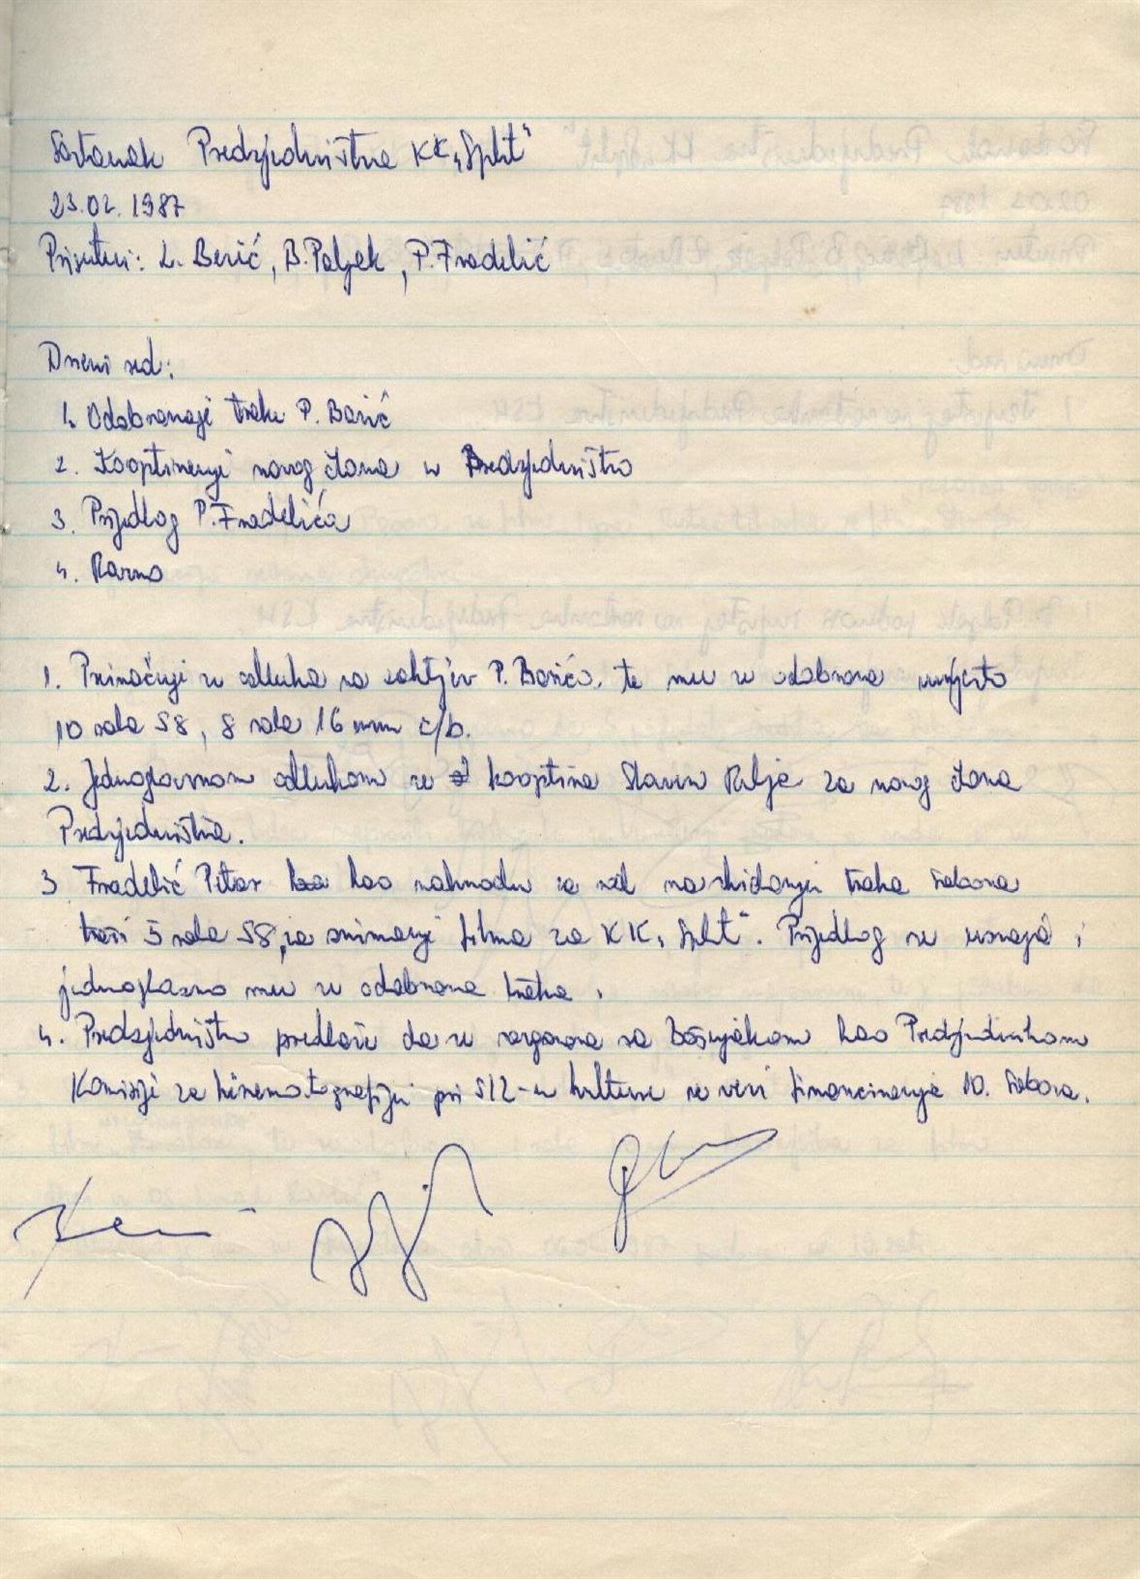 Sastanak Predsjedništva KK „Split"
23.02.1987
Prisutni: L. Berić, B. Poljak, P. Fradelić
Dnevni red:
1. Odobravanje trake P. Barić
2. Kooptiranje novog člana u Predsjedništvo
3. Prijedlog P. Fradelića
4. Razno
1. Prihvaćuje se odluka sa zahtjev P. Barića, te mu se odobrava umjesto
10 rola S8, 8 rola 16 mm c/b.
2. Jednoglasnom odlukom se kooptira Slaven Relja za novog člana
Predsjedništva.
3 Fradelić Petar kao naknadu za rad na skidanju traka Sabora
traži 5 rola S8, za snimanje filma za KK „Split". Prijedlog se usvaja i
jednoglasno mu se odobrava traka.
4. Predsjedništvo predlaže da se razgovara sa Bošnjakom kao Predsjednikom
Komisije za kinematografiju pri SIZ-u kulture u vezi financiranja 10. Sabora.